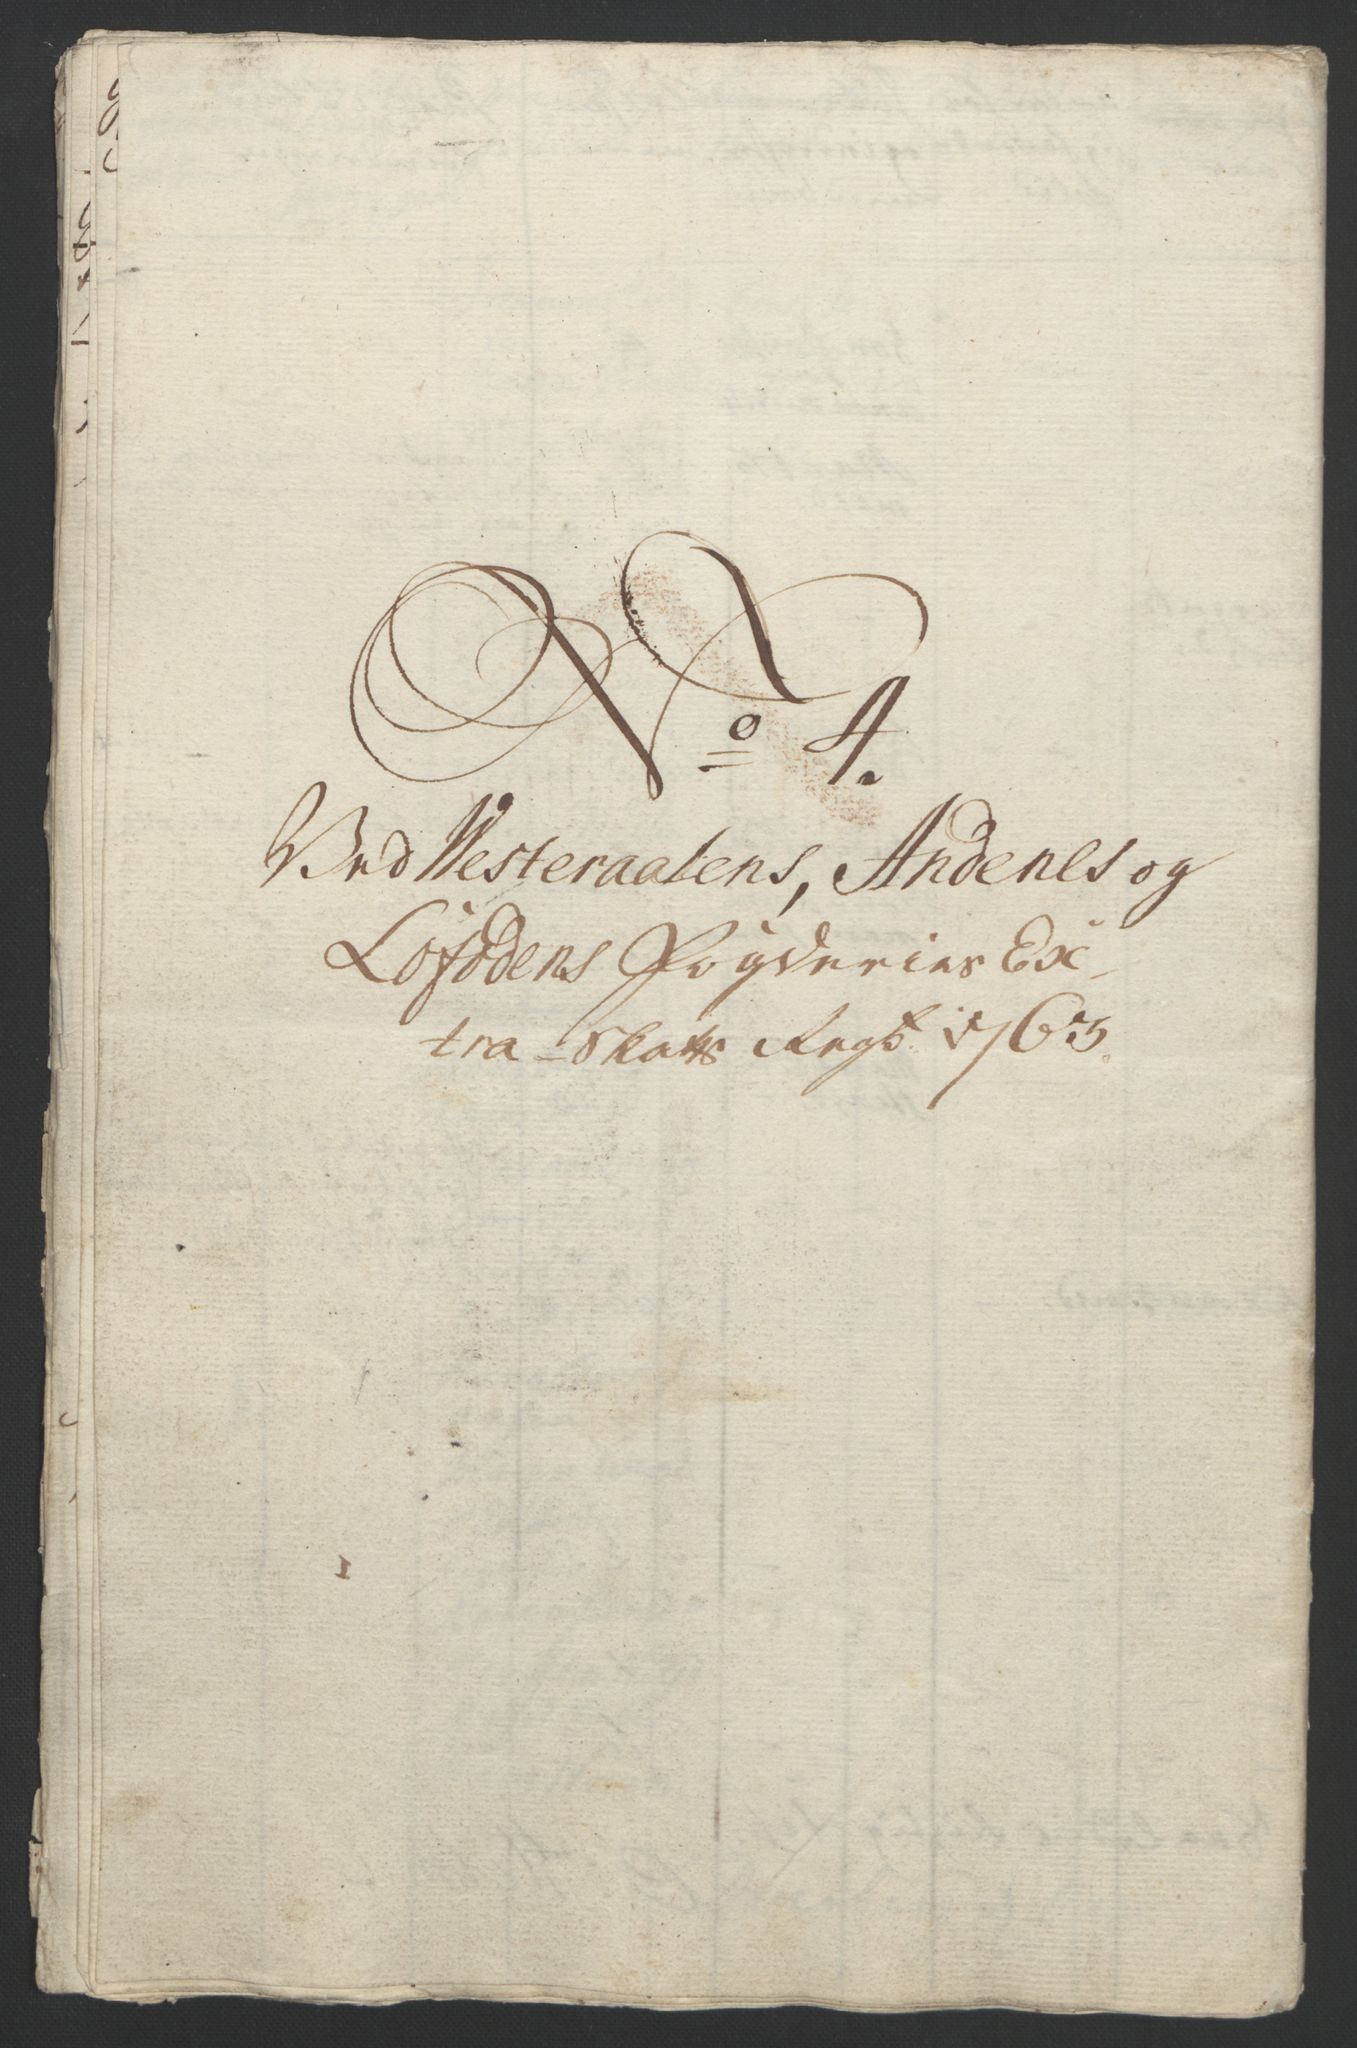 No 4.
Ved Westeraalens, Andenes og
Lofodens Fogderies Ex-
tra-Skatts Regb. 1763.
1